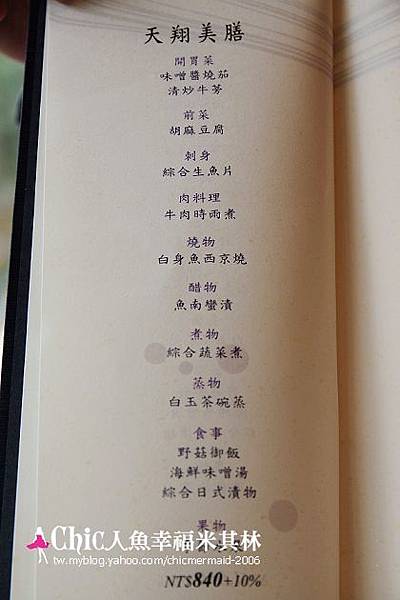 天翔美膳
開胃菜
味噌醬燒茄
清炒牛芳
前菜
胡麻豆腐
刺身
綜合生魚片
肉料理
牛肉時雨煮
燒物
白身魚西京燒
醋物
魚南蠻漬
煮物
綜合蔬菜煮
蒸物
白玉茶碗蒸
食事
野菇御飯
海鮮味噌湯
綜合日式漬物
果物
CHIC人魚幸福米其林
tw.myblog.yahoo.com/chicmermaid-2006
NT$840+10%